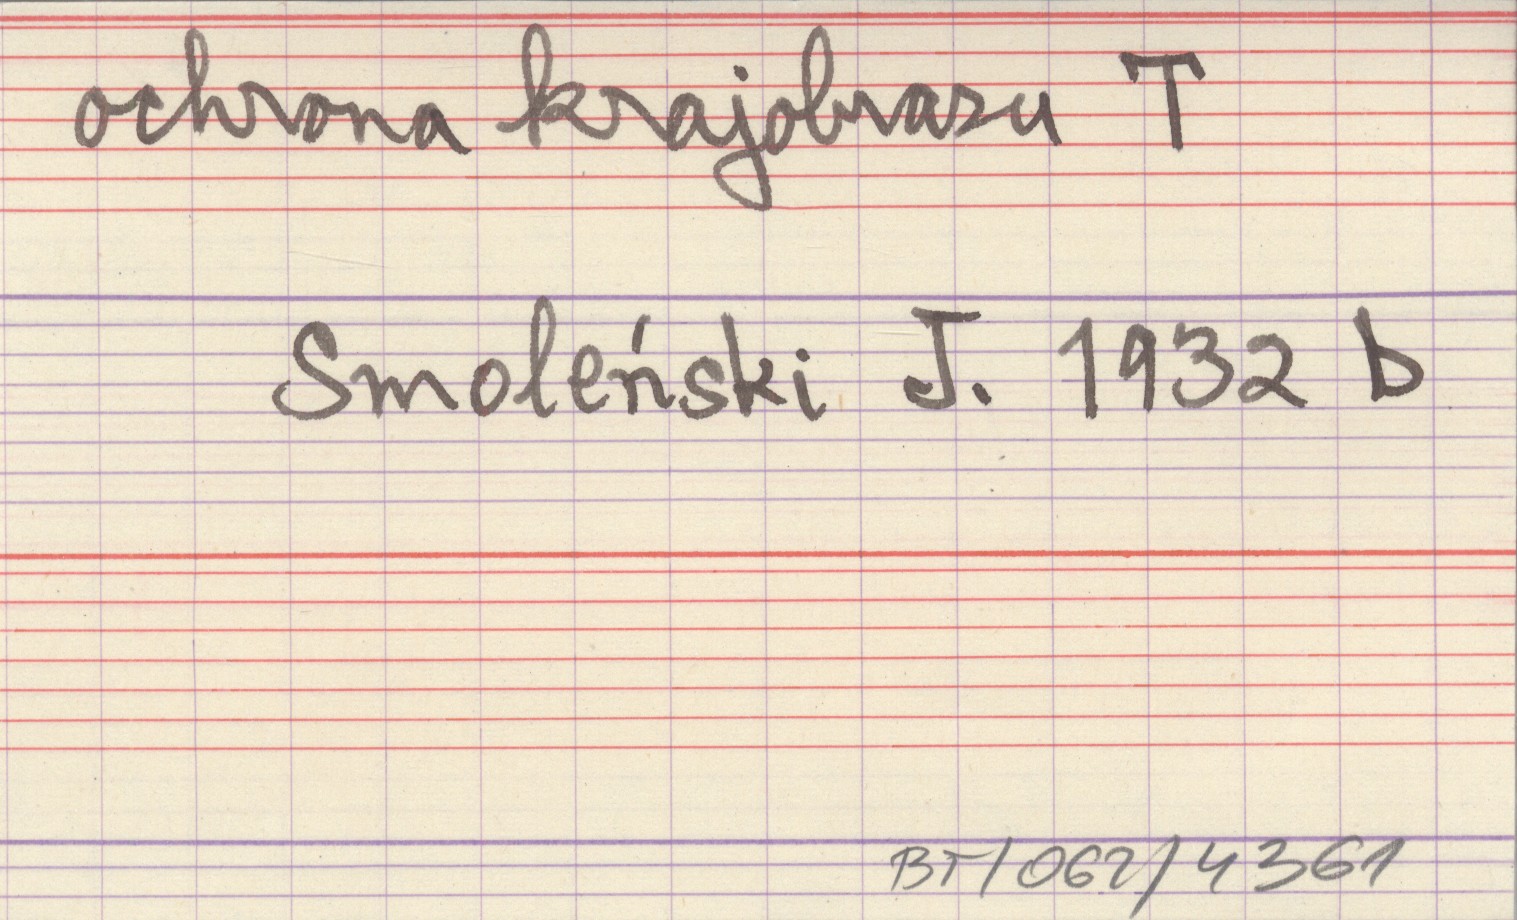 ochrona krajobrazu T
Smoleński J. 1932 b
BT/062/4361